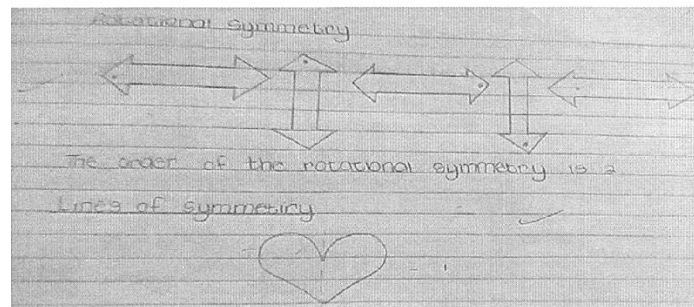 Rotational symmetry
The order of the rotational symmetry is 2
Lines of symmetry
- 1